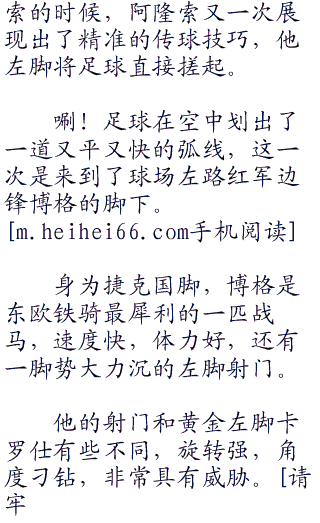 索的时候，阿隆索又一次展
现出了精准的传球技巧，他
左脚将足球直接搓起。
唰！足球在空中划出了
一道又平又快的弧线，这一
次是来到了球场左路红军边
锋博格的脚下。
[m.heihei66.com手机阅读]
身为捷克国脚，博格是
东欧铁骑最犀利的一匹战
马，速度快，体力好，还有
一脚势大力沉的左脚射门。
他的射门和黄金左脚卡
罗仕有些不同，旋转强，角
度刁钻，非常具有威胁。[请
牢